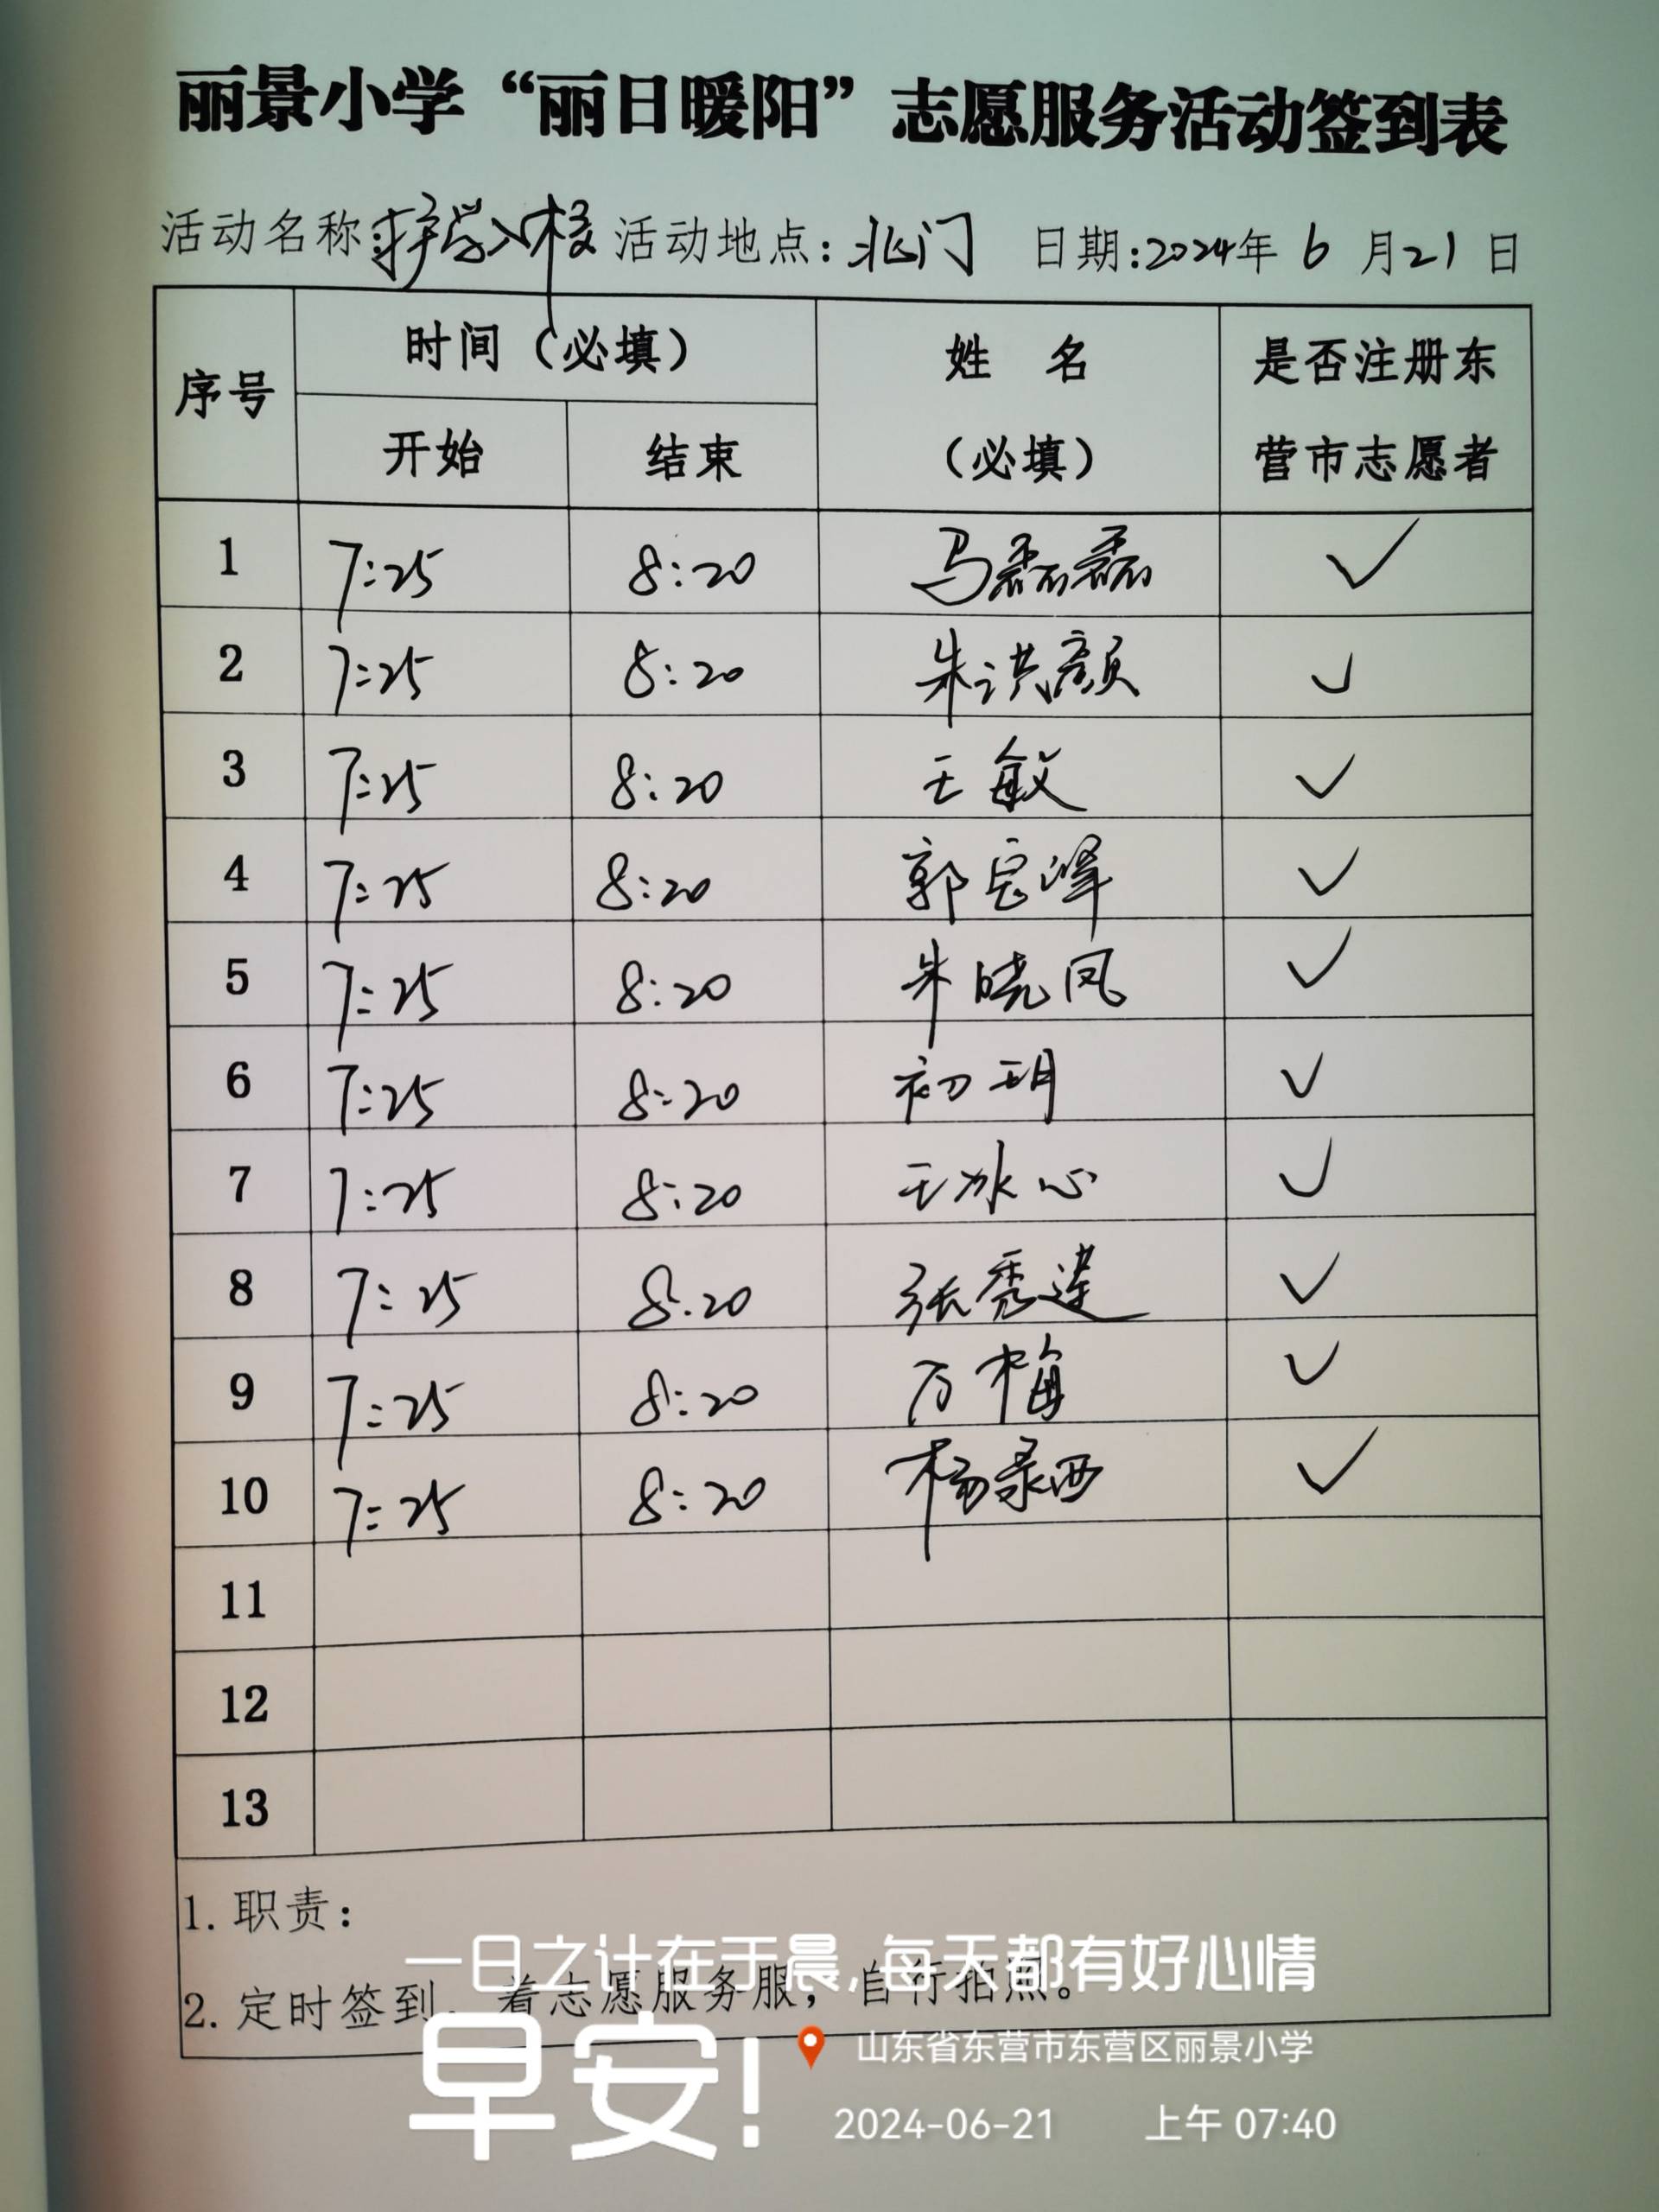 丽景小学“丽日暖阳”志愿服务活动签到表
活动名称 护学入校 活动地点：北门 日期：2024年 6 月 21 日
序号 时间（必填） 姓 名（必填） 是否注册东营市志愿者
开始 结束
1 7:25 8:20 马磊磊 ✓
2 7:25 8:20 朱洪颜 ✓
3 7:25 8:20 王敏 ✓
4 7:25 8:20 郭宝峰 ✓
5 7:25 8:20 朱晓凤 ✓
6 7:25 8:20 初玥 ✓
7 7:25 8:20 王冰心 ✓
8 7:25 8:20 张秀莲 ✓
9 7:25 8:20 万梅 ✓
10 7:25 8:20 杨录西 ✓
11
12
13
1. 职责：
2. 定时签到，着志愿服务服，自行拍照。
一日之计在于晨,每天都有好心情
早安!
山东省东营市东营区丽景小学
2024-06-21 上午 07:40